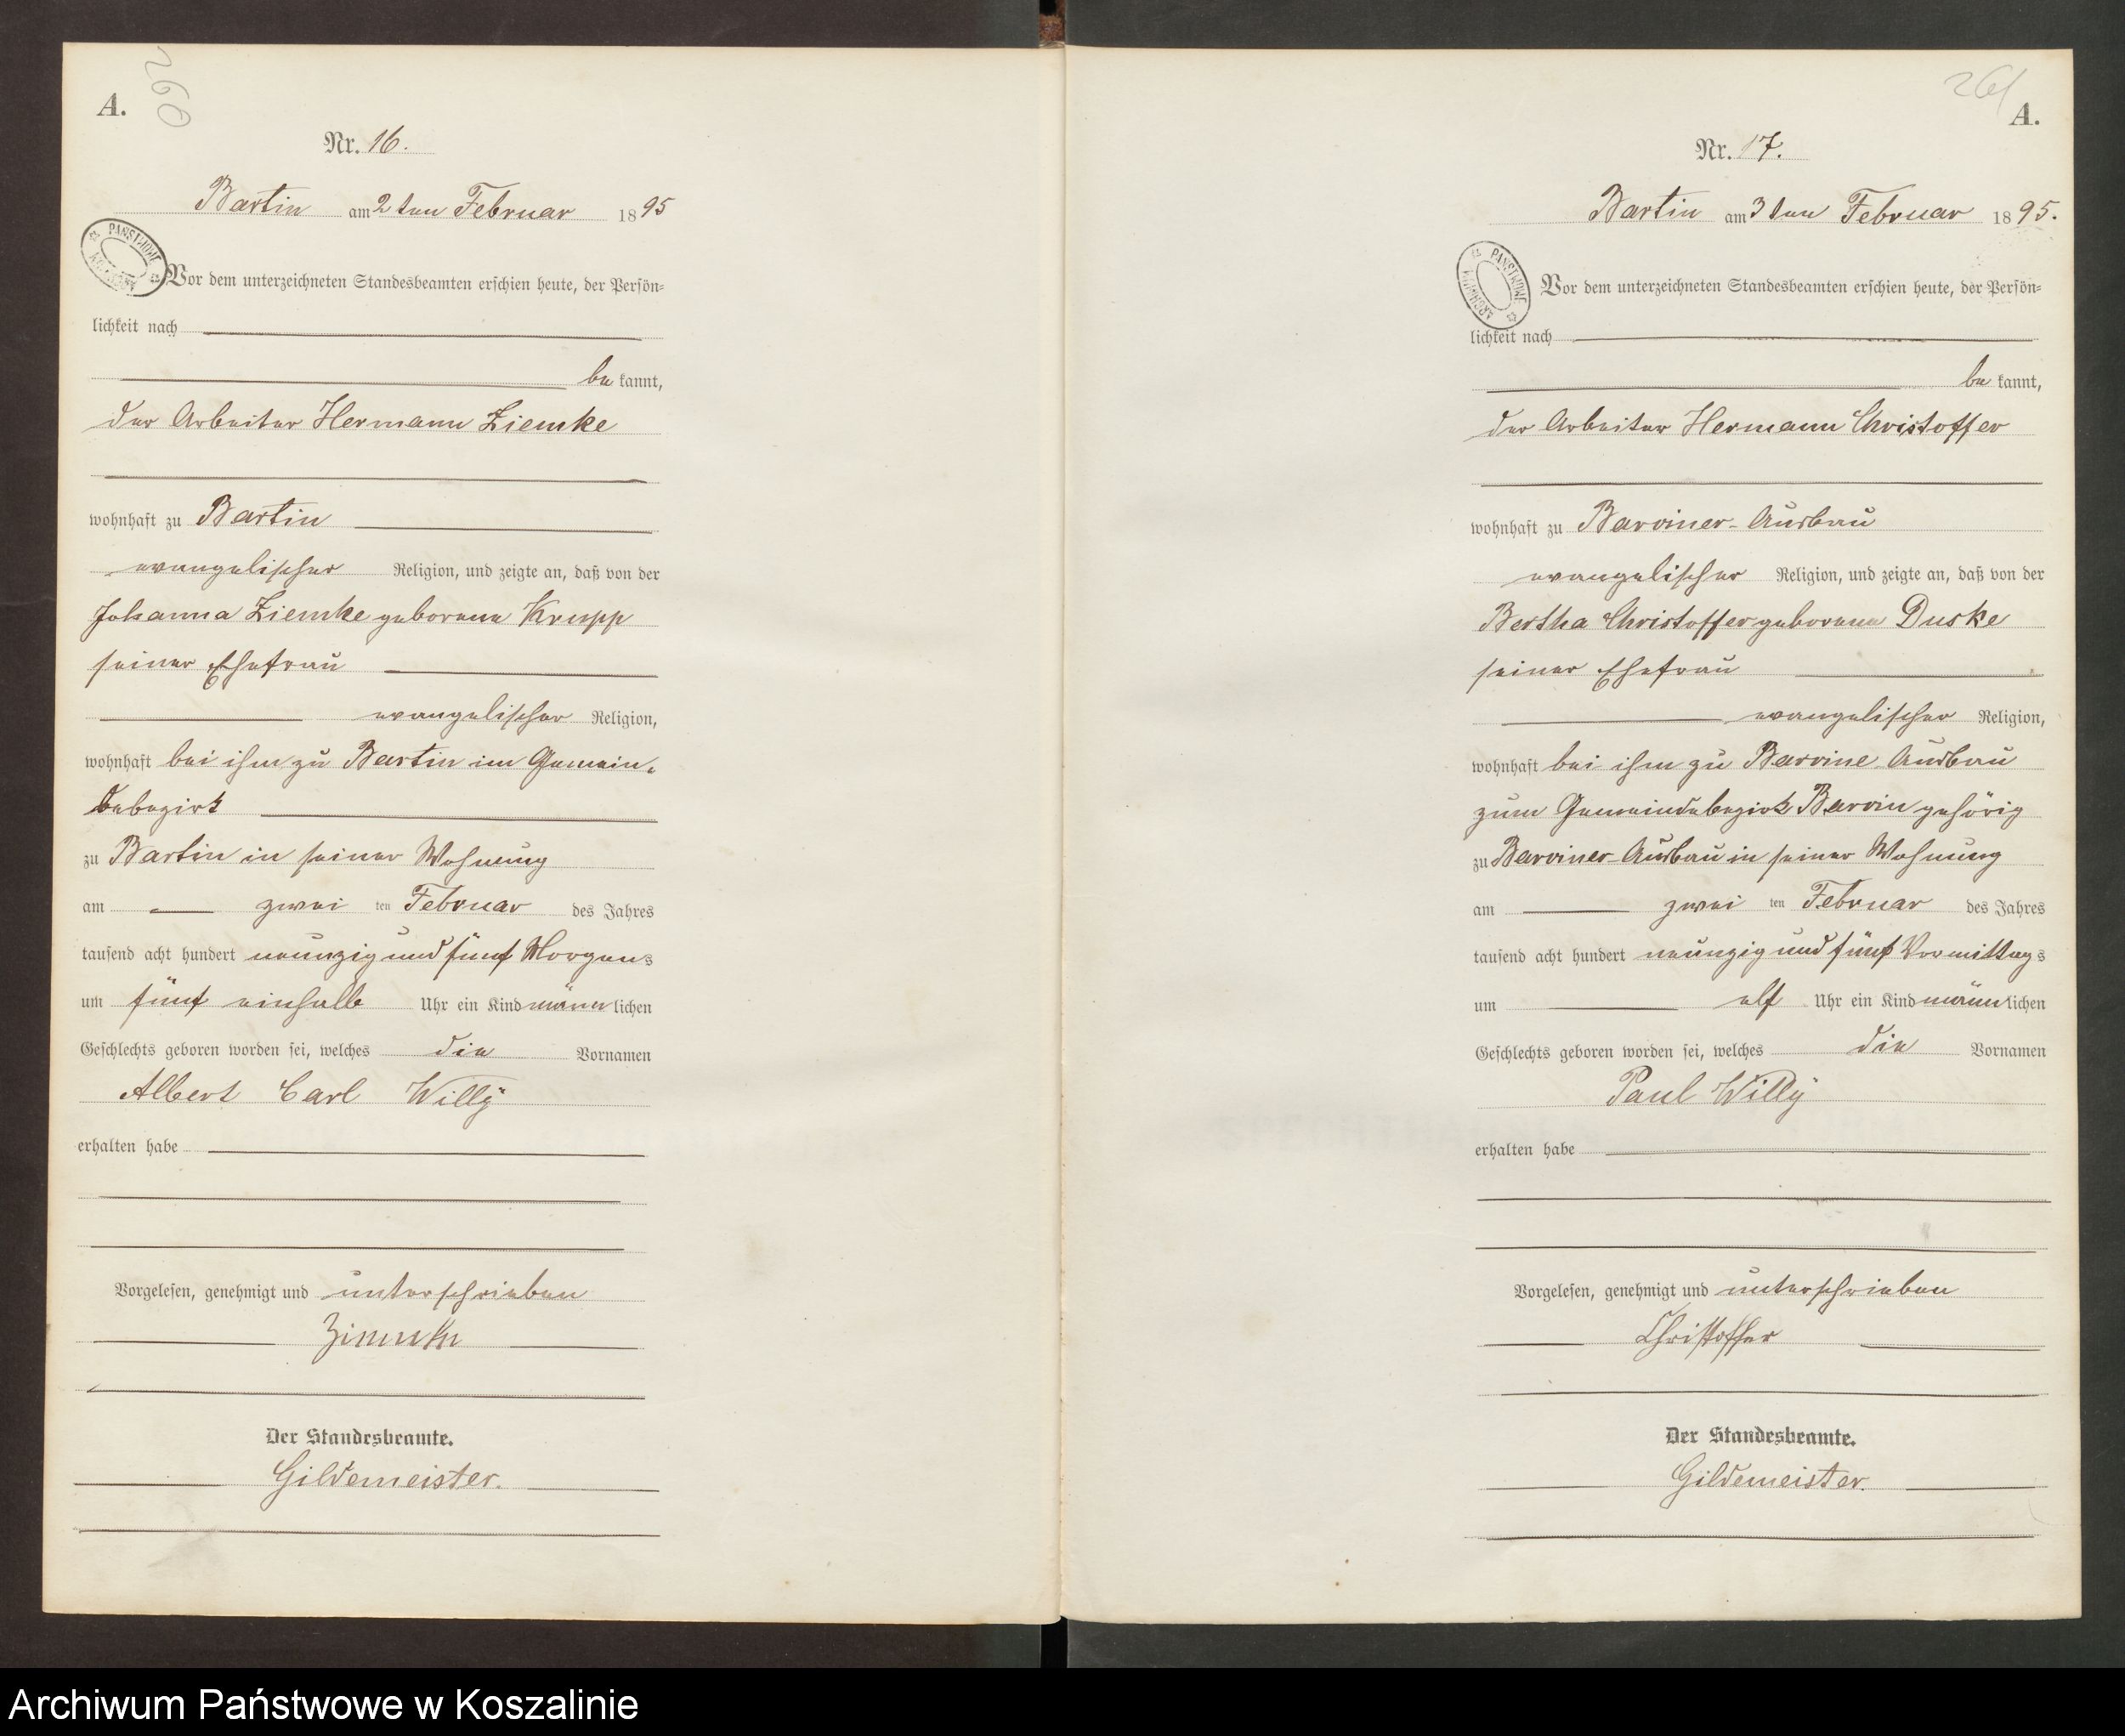 A.
260
Nr. 16.
Bartin am 2ten Februar 1895
Vor dem unterzeichneten Standesbeamten erschien heute, der Persön=
lichkeit nach
be kannt,
der Arbeiter Hermann Ziemke
wohnhaft zu Bartin
evangelischer Religion, und zeigte an, daß von der
Johanna Ziemke geborene Krupp
seiner Ehefrau
evangelischer Religion,
wohnhaft bei ihm zu Bartin im Gemein-
debezirk
zu Bartin in seiner Wohnung
am zwei ten Februar des Jahres
tausend acht hundert neunzig und fünf Morgens
um fünf einhalb Uhr ein Kind männlichen
Geschlechts geboren worden sei, welches die Vornamen
Albert Carl Willÿ
erhalten habe
Vorgelesen, genehmigt und unterschrieben
Der Standesbeamte.
Gildemeister.
261
A.
Nr. 17.
Bartin am 3ten Februar 1895.
PAŃSTWOWE ARCHIWUM
Vor dem unterzeichneten Standesbeamten erschien heute, der Persön=
lichkeit nach
be kannt,
der Arbeiter Hermann Christoffer
wohnhaft zu Barviner-Ausbau
evangelischer Religion, und zeigte an, daß von der
Bertha Christoffer geborene Duske
seiner Ehefrau
evangelischer Religion,
wohnhaft bei ihm zu Barvine-Ausbau
zum Gemeindebezirk Barvin gehörig
zu Barviner-Ausbau in seiner Wohnung
am zwei ten Februar des Jahres
tausend acht hundert neunzig und fünf Vormittags
um elf Uhr ein Kind männlichen
Geschlechts geboren worden sei, welches die Vornamen
Paul Willÿ
erhalten habe
Vorgelesen, genehmigt und unterschrieben
Christoffer
Der Standesbeamte.
Gildemeister.
Archiwum Państwowe w Koszalinie